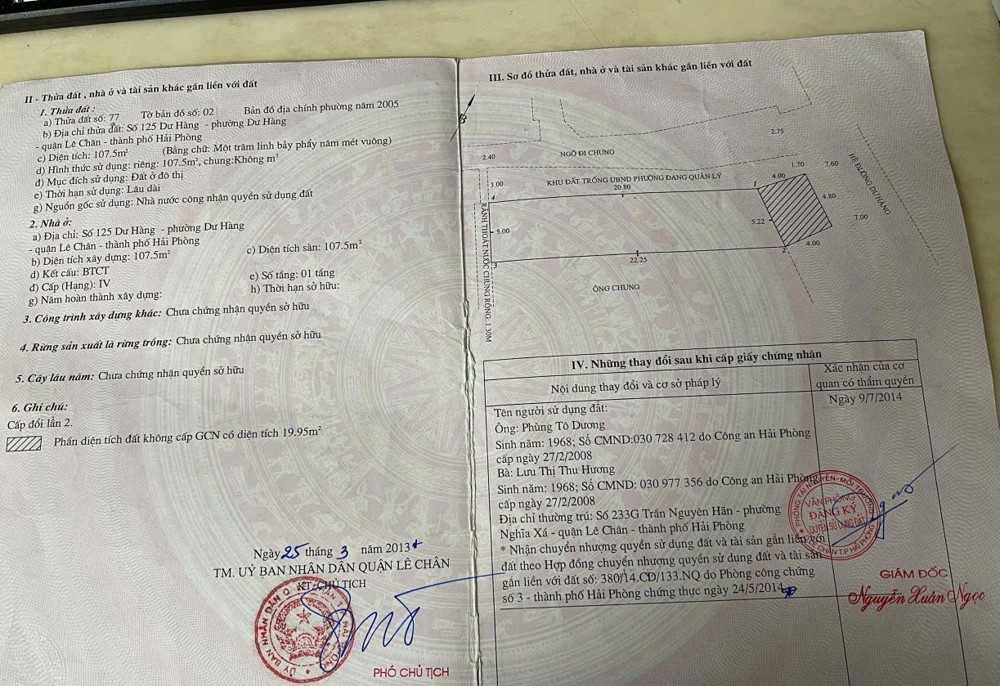 II - Thửa đất , nhà ở và tài sản khác gắn liền với đất
1. Thửa đất :
a) Thửa đất số: 77 Tờ bản đồ số: 02 Bản đồ địa chính phường năm 2005
b) Địa chỉ thửa đất: Số 125 Dư Hàng - phường Dư Hàng
- quận Lê Chân - thành phố Hải Phòng
c) Diện tích: 107.5m² (Bằng chữ: Một trăm linh bảy phẩy năm mét vuông)
d) Hình thức sử dụng: riêng: 107.5m², chung:Không m²
đ) Mục đích sử dụng: Đất ở đô thị
e) Thời hạn sử dụng: Lâu dài
g) Nguồn gốc sử dụng: Nhà nước công nhận quyền sử dụng đất
2. Nhà ở:
a) Địa chỉ: Số 125 Dư Hàng - phường Dư Hàng
- quận Lê Chân - thành phố Hải Phòng
b) Diện tích xây dựng: 107.5m² c) Diện tích sàn: 107.5m²
d) Kết cấu: BTCT
đ) Cấp (Hạng): IV e) Số tầng: 01 tầng
g) Năm hoàn thành xây dựng: h) Thời hạn sở hữu:
3. Công trình xây dựng khác: Chưa chứng nhận quyền sở hữu
4. Rừng sản xuất là rừng trồng: Chưa chứng nhận quyền sở hữu
5. Cây lâu năm: Chưa chứng nhận quyền sở hữu
6. Ghi chú:
Cấp đổi lần 2.
Phần diện tích đất không cấp GCN có diện tích 19.95m²
Ngày 25 tháng 3 năm 2013
TM. UỶ BAN NHÂN DÂN QUẬN LÊ CHÂN
KT. CHỦ TỊCH
PHÓ CHỦ TỊCH
III. Sơ đồ thửa đất, nhà ở và tài sản khác gắn liền với đất
B
2.75
NGÕ ĐI CHUNG
2.40
HÈ ĐƯỜNG DƯ HÀNG
1.70
7.60
3.00
KHU ĐẤT TRỐNG UBND PHƯỜNG ĐANG QUẢN LÝ
4.00
4
20.80
1
4.80
RÃNH THOÁT NƯỚC CHUNG RỘNG: 1.30M
5.00
5.22
7.00
3
22.25
2
4.00
ÔNG CHUNG
IV. Những thay đổi sau khi cấp giấy chứng nhận
Nội dung thay đổi và cơ sở pháp lý
Xác nhận của cơ
quan có thẩm quyền
Tên người sử dụng đất:
Ngày 9/7/2014
Ông: Phùng Tô Dương
Sinh năm: 1968; Số CMND:030 728 412 do Công an Hải Phòng
cấp ngày 27/2/2008
Bà: Lưu Thị Thu Hương
Sinh năm: 1968; Số CMND: 030 977 356 do Công an Hải Phòng
cấp ngày 27/2/2008
Địa chỉ thường trú: Số 233G Trần Nguyên Hãn - phường
Nghĩa Xá - quận Lê Chân - thành phố Hải Phòng
* Nhận chuyển nhượng quyền sử dụng đất và tài sản gắn liền với
đất theo Hợp đồng chuyển nhượng quyền sử dụng đất và tài sản
gắn liền với đất số: 380/14.CD/133.NQ do Phòng công chứng
số 3 - thành phố Hải Phòng chứng thực ngày 24/5/2014
VĂN PHÒNG
ĐĂNG KÝ
QUYỀN SỬ DỤNG ĐẤT
GIÁM ĐỐC
Nguyễn Xuân Ngọc